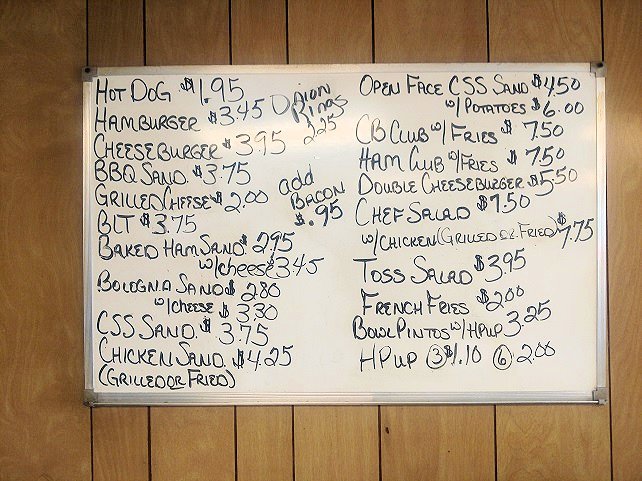 HOT DOG $1.95
HAMBURGER $3.45
CHEESEBURGER $3.95
BBQ SAND. $3.75
GRILLED CHEESE $2.00
BLT $3.75
BAKED HAM SAND. $2.95
w/cheese 3.45
BOLOGNA SAND $2.80
w/CHEESE $3.30
CSS SAND. $3.75
CHICKEN SAND. $4.25
(GRILLED OR FRIED)
ONION
RINGS
2.25
add
BACON
$.95
OPEN FACE CSS SAND $4.50
w/POTATOES $6.00
CB CLUB w/FRIES $7.50
HAM CLUB w/FRIES $7.50
DOUBLE CHEESEBURGER $5.50
CHEF SALAD $7.50
w/CHICKEN (GRILLED OR FRIED) $7.75
TOSS SALAD $3.95
FRENCH FRIES $2.00
BOWL PINTOS w/HPUP 3.25
HPUP 3 $1.10 6 2.00